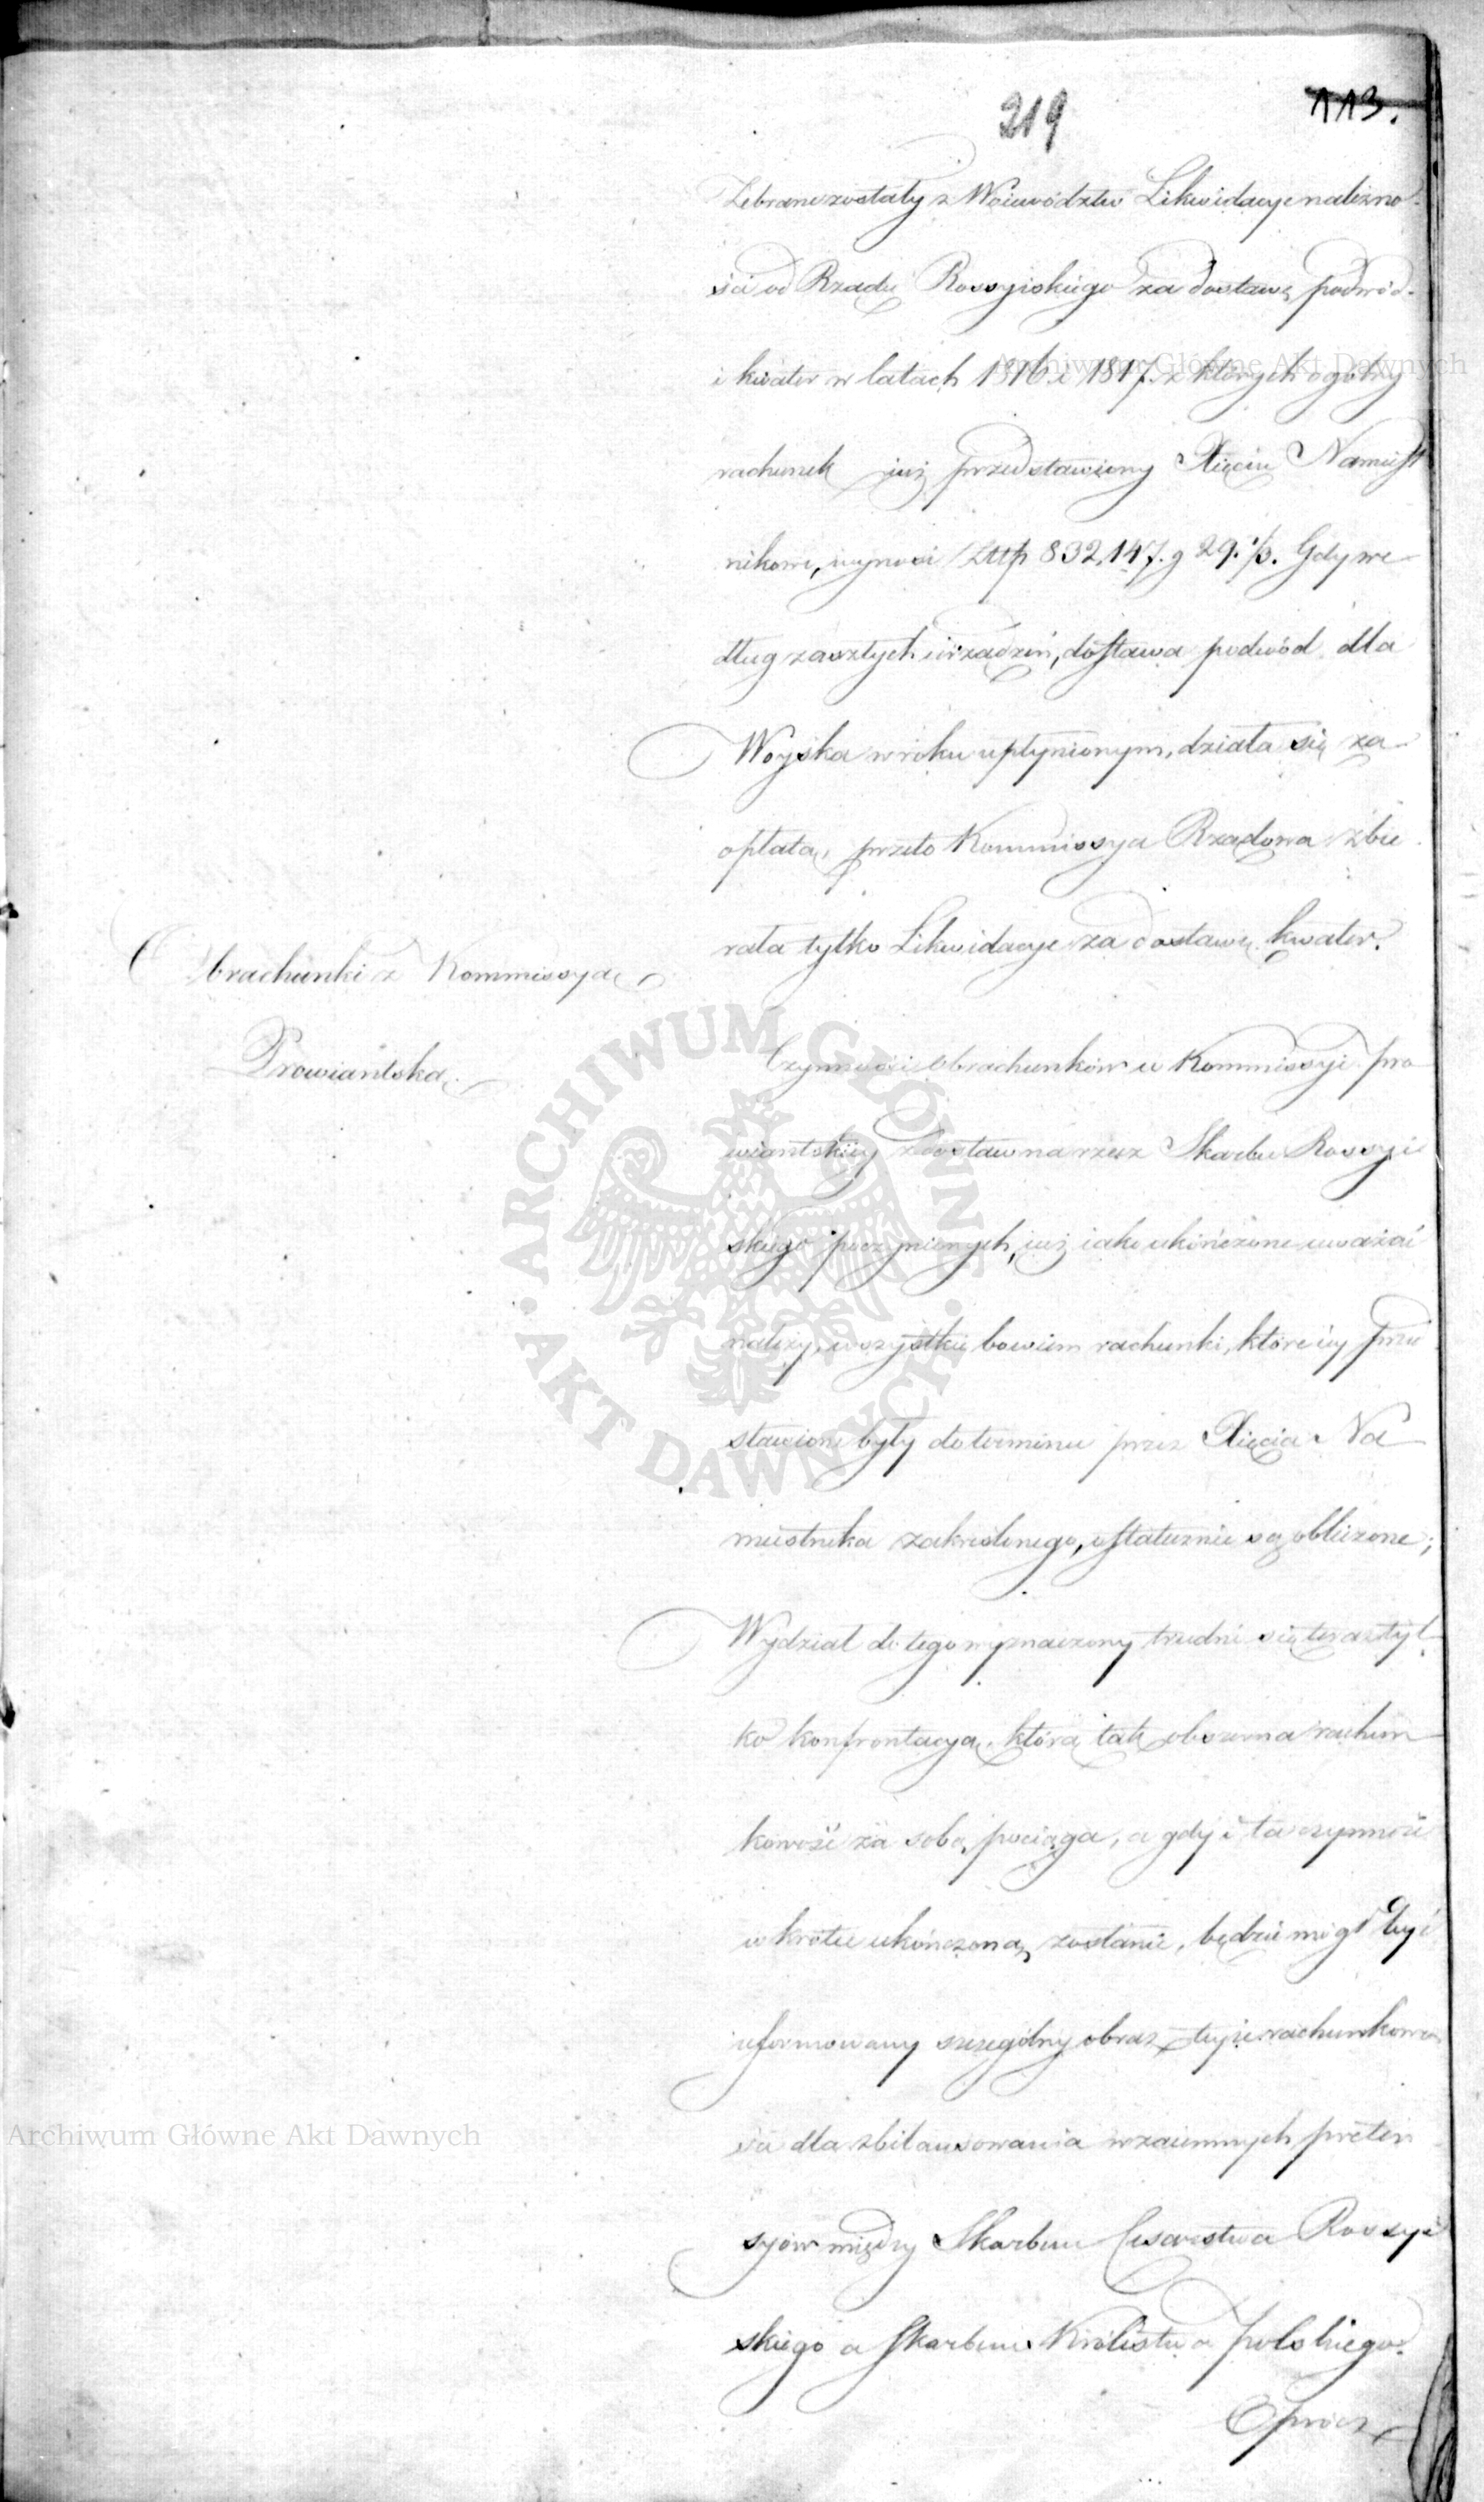 219
113.
Zebrane zostały z Woiewództw Likwidacye należno-
ści od Rządu Rossyiskiego za dostawę podwód
i kwater w latach 1816 i 1817. z których ogólny
rachunek iuż przedstawiony Xięciu Namiest
nikowi, wynosi Złtp 832,147. g 29. 1/3. Gdy we-
dług zaszłych urządzeń, dostawa podwód dla
Woyska w roku upłynionym, działa się za
opłatą, przeto Kommissya Rządowa zbie
rała tylko Likwidacye za dostawę kwater.
Obrachunki z Kommissyą
Prowiantską.
Czynności obrachunków w Kommissyi pro
wiantskiey z dostaw na rzecz Skarbu Rossyi
skiego poczynionych, iuż iako ukończone uważać
należy, wszystkie bowiem rachunki, które iey przed
stawione były do terminu przez Xięcia Na
miestnika zakreślonego, ostatecznie są obliczone;
Wydział do tego wyznaczony trudni się teraz tyl-
ko konfrontacyą, którą tak obszerna rachun
kowość za sobą pociąga, a gdy i ta czynność
wkrótce ukończoną zostanie, będzie mógł być
uformowany szczególny obraz teyże rachunkowo
ści dla zbilansowania wzaiemnych preten
syów między Skarbem Cesarstwa Rossyi
skiego a Skarbem Królestwa Polskiego.
Oprócz
Archiwum Główne Akt Dawnych
ARCHIWUM GŁÓWNE
AKT DAWNYCH
Archiwum Główne Akt Dawnych